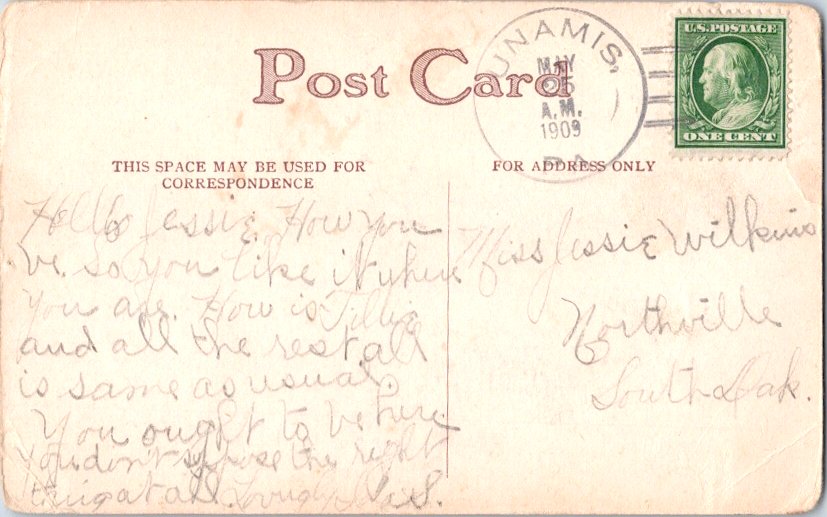 Post Card
UNAMIS,
MAY
25
A.M.
1909
PA.
U.S. POSTAGE
ONE CENT
THIS SPACE MAY BE USED FOR
CORRESPONDENCE
FOR ADDRESS ONLY
Hello Jessie. How you
be. so you like it where
you are. How is Tillie
and all the rest all
is same as usual.
You ought to be here
you don't suppose the right
thing at all.
Miss Jessie Wilkins
Northville
South Dak.